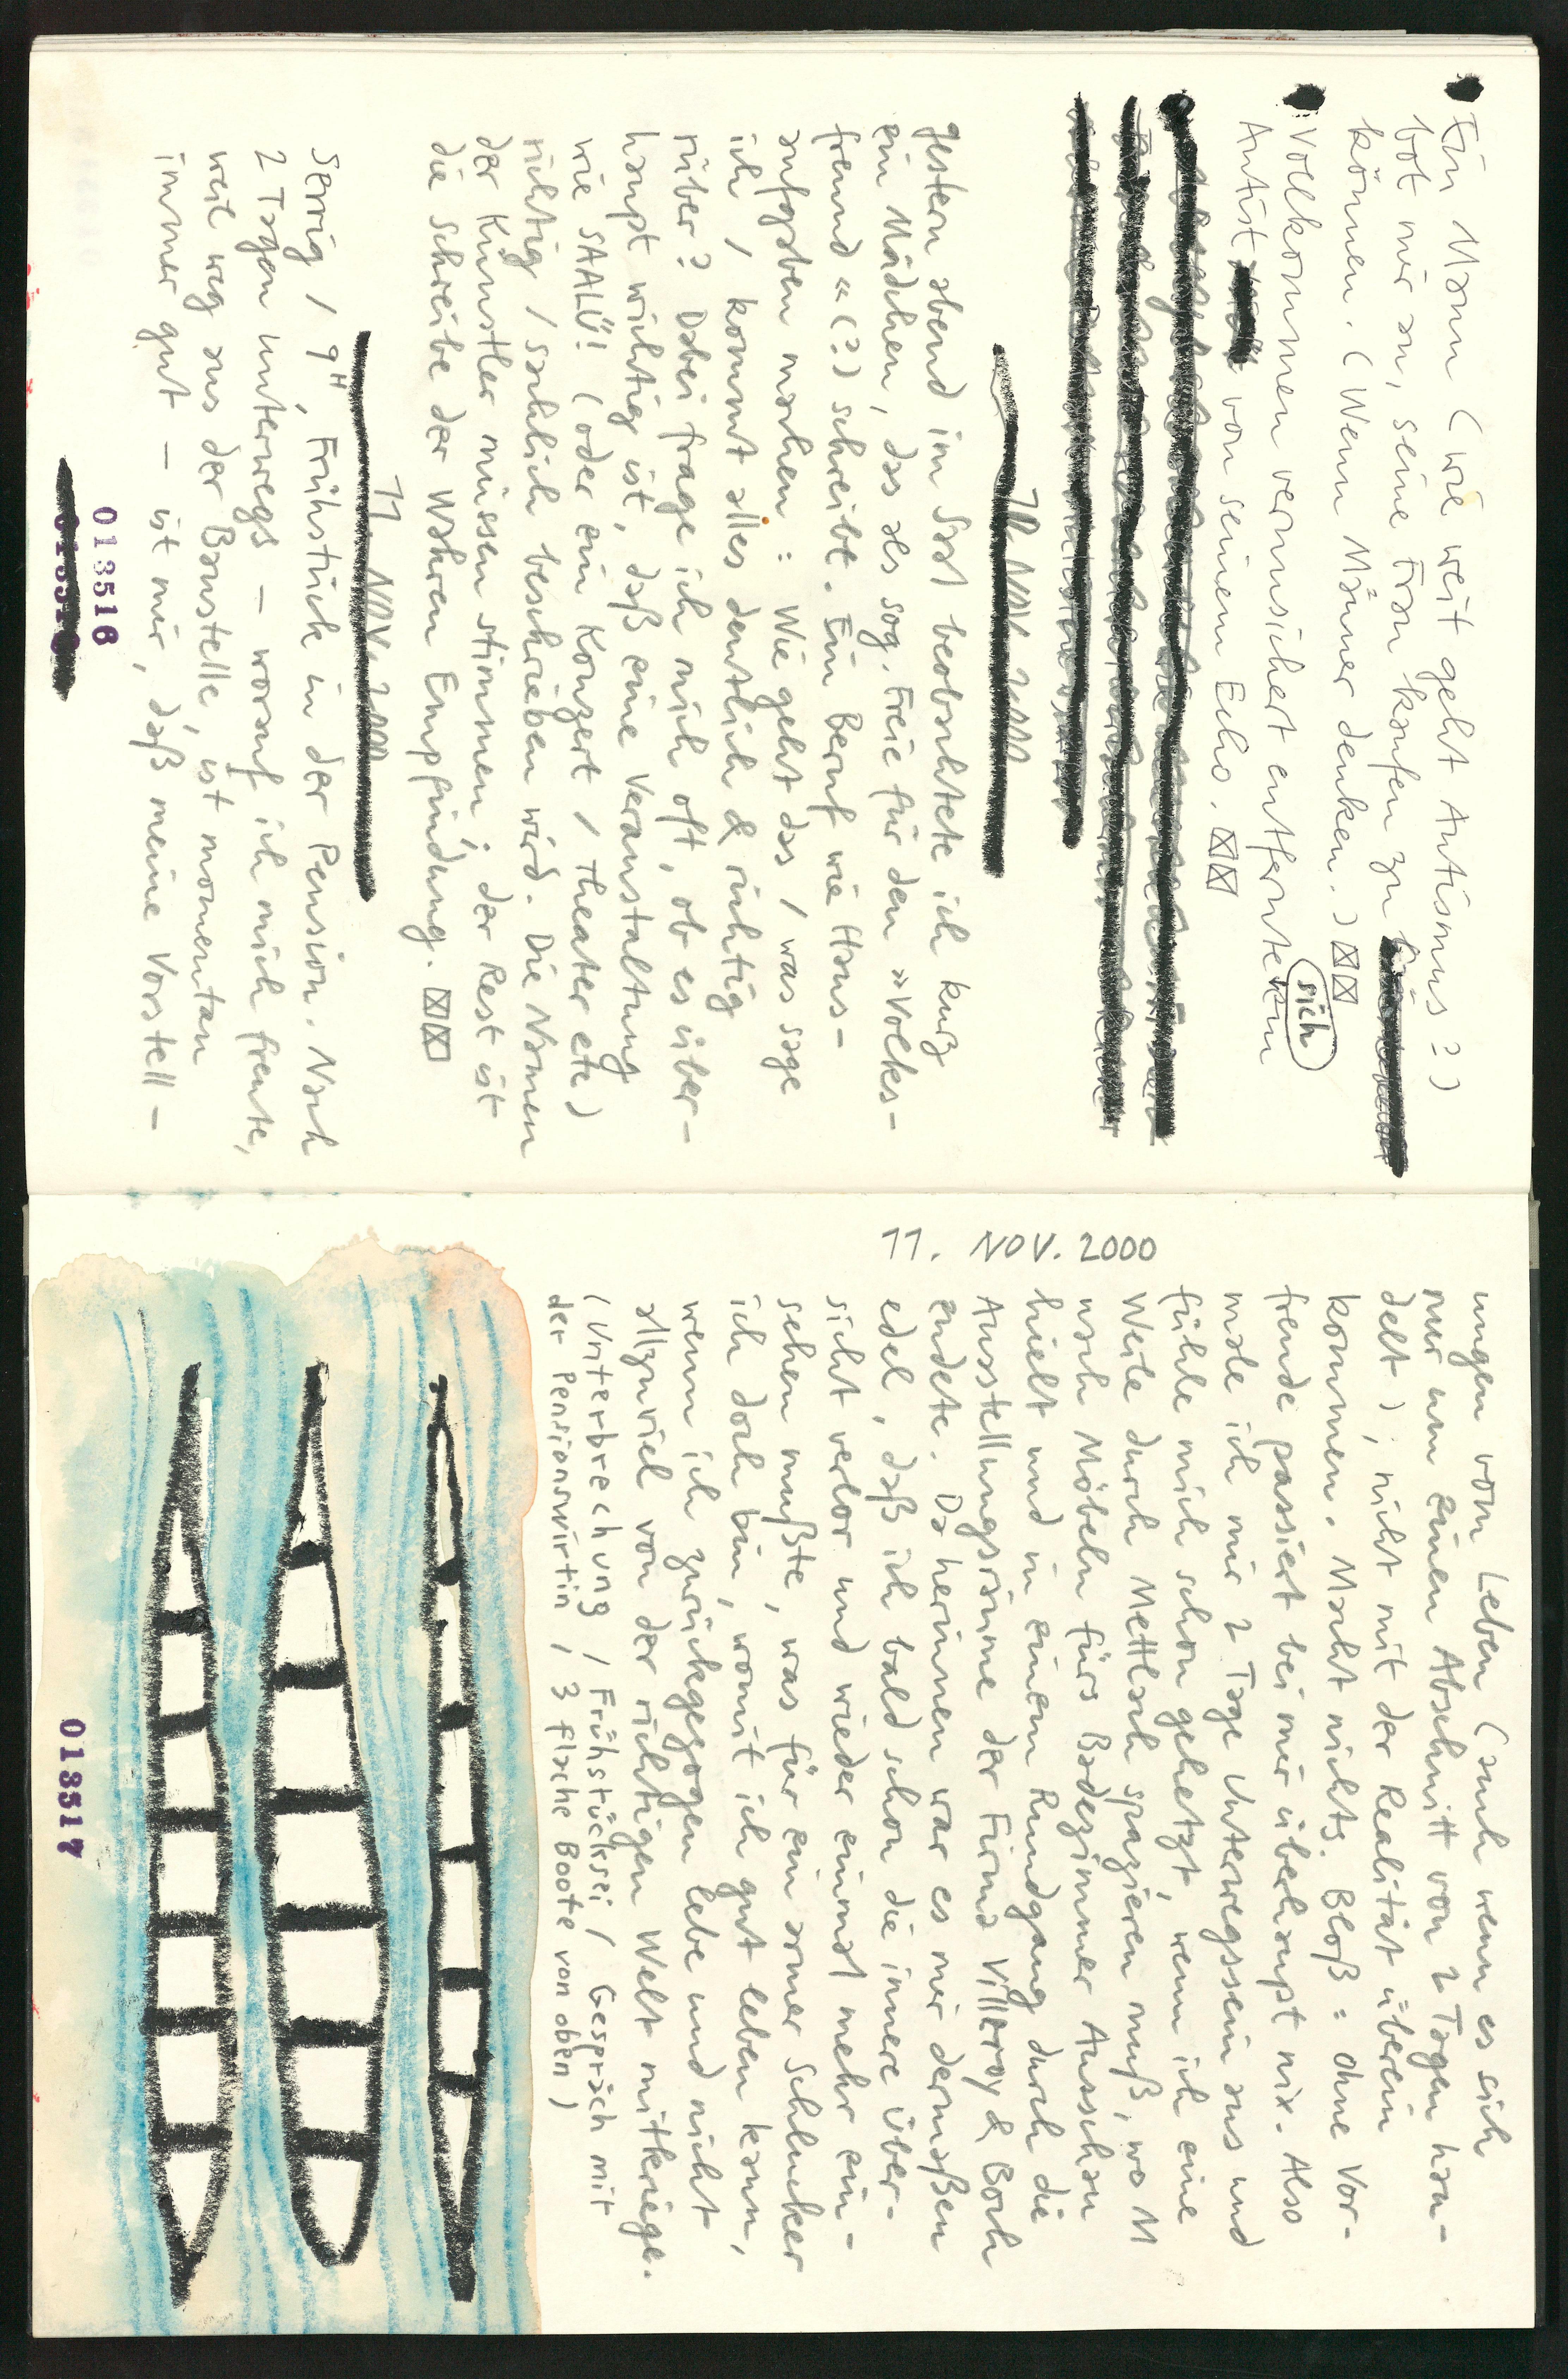 Ein Mann (wie weit geht Autismus?)
bot mir an, seine Frau kaufen zu
können. (Wenn Männer denken.)
Vollkommen verunsichert entfernte ein
sich
Autist von seinem Echo.
10. NOV. 2000
Gestern abend im Saal beobachtete ich kurz
ein Mädchen, das als sog. Freie für den »Volks-
freund« (?) schreibt. Ein Beruf wie Haus-
aufgaben machen: Wie geht das / was sage
ich / kommt alles deutlich & richtig
rüber? Dabei frage ich mich oft, ob es über-
haupt wichtig ist, daß eine Veranstaltung
wie SAALÜ! (oder ein Konzert / Theater etc)
richtig / sachlich beschrieben wird. Die Namen
der Künstler müssen stimmen; der Rest ist
die Schreibe der wahren Empfindung.
11. NOV. 2000
Serrig / 9H, Frühstück in der Pension. Nach
2 Tagen unterwegs – worauf ich mich freute,
weil weg aus der Baustelle, ist momentan
immer gut – ist mir, daß meine Vorstell-
013516
11. NOV. 2000
ungen vom Leben (auch wenn es sich
nur um einen Abschnitt von 2 Tagen han-
delt), nicht mit der Realität überein
kommen. Macht nichts. Bloß: ohne Vor-
freude passiert bei mir überhaupt nix. Also
male ich mir 2 Tage Unterwegssein aus und
fühle mich schon gehetzt, wenn ich eine
Weile durch Mettlach spazieren muß, wo M
nach Möbeln fürs Badezimmer Ausschau
hielt und in einem Rundgang durch die
Ausstellungsräume der Firma Villeroy & Boch
endete. Da herinnen war es mir dermaßen
edel, daß ich bald schon die innere Über-
sicht verlor und wieder einmal mehr ein-
sehen mußte, was für ein armer Schlucker
ich doch bin, womit ich gut leben kann,
wenn ich zurückgezogen lebe und nicht
allzuviel von der richtigen Welt mitkriege.
(Unterbrechung / Frühstücksei / Gespräch mit
der Pensionswirtin / 3 flache Boote von oben)
013517